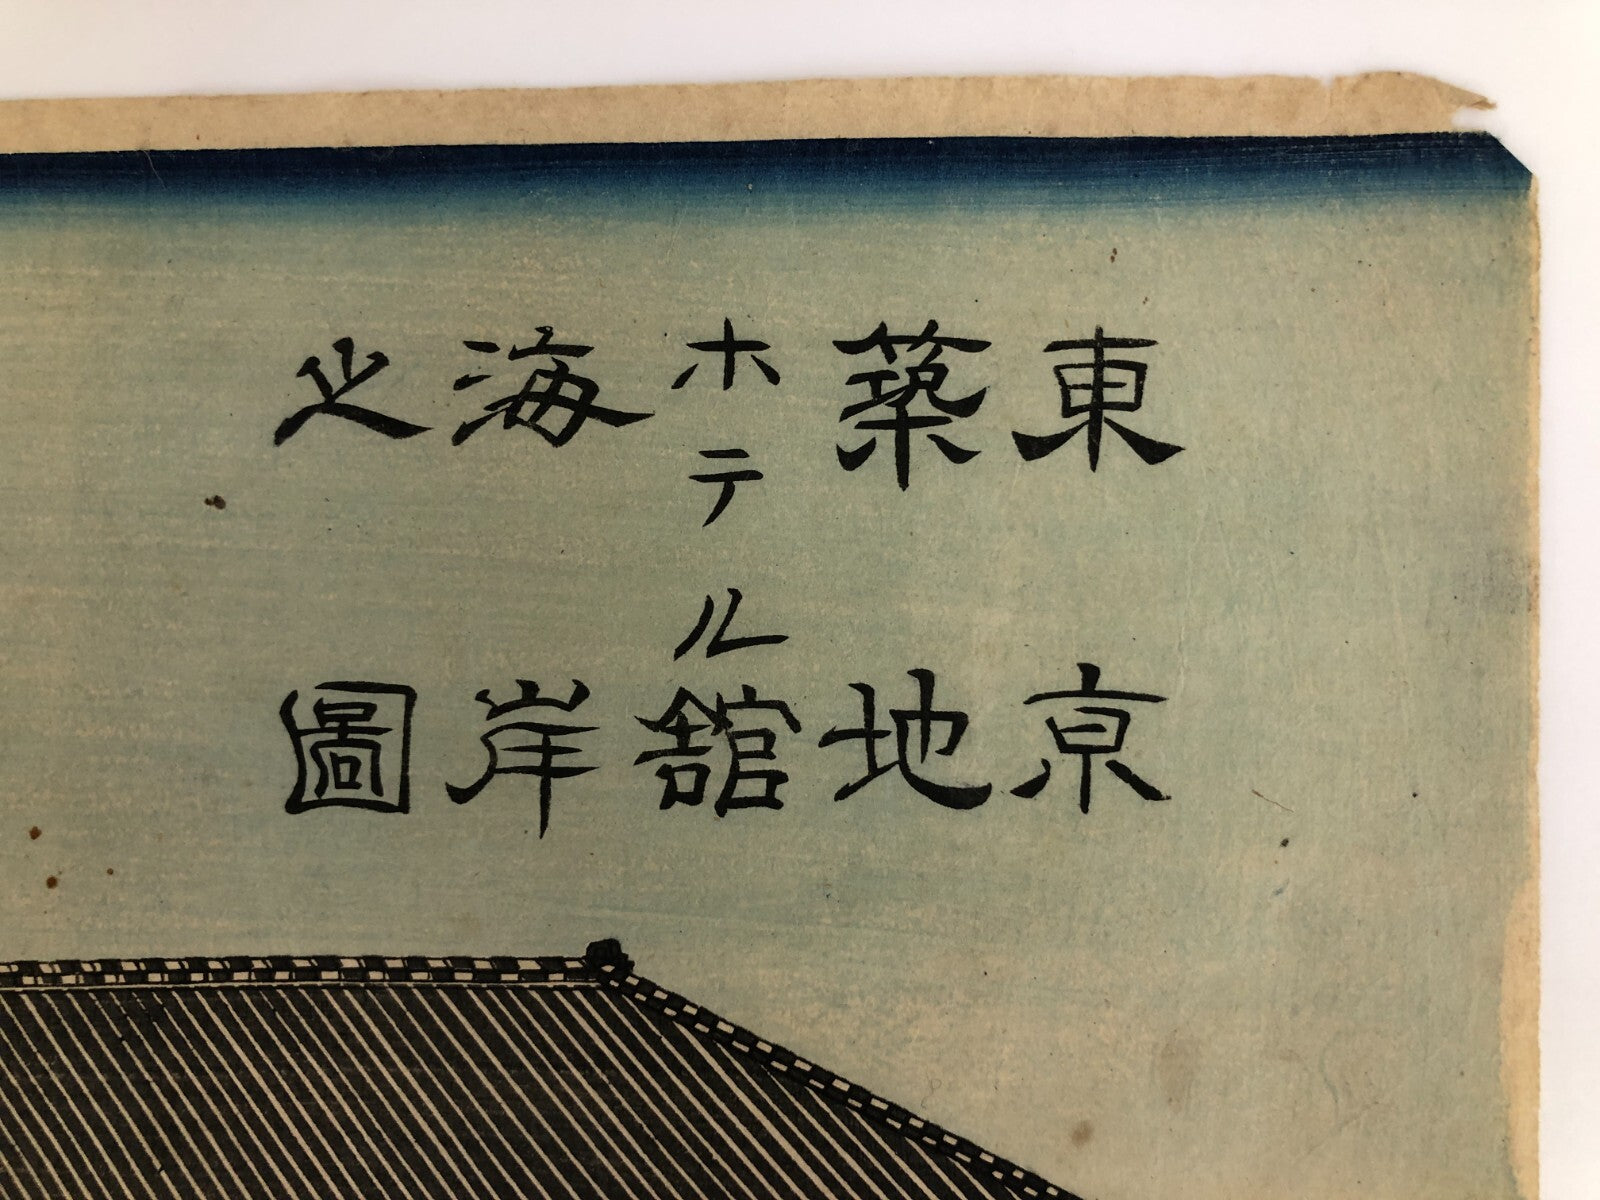 東京
築地
ホテル舘
海岸
之圖